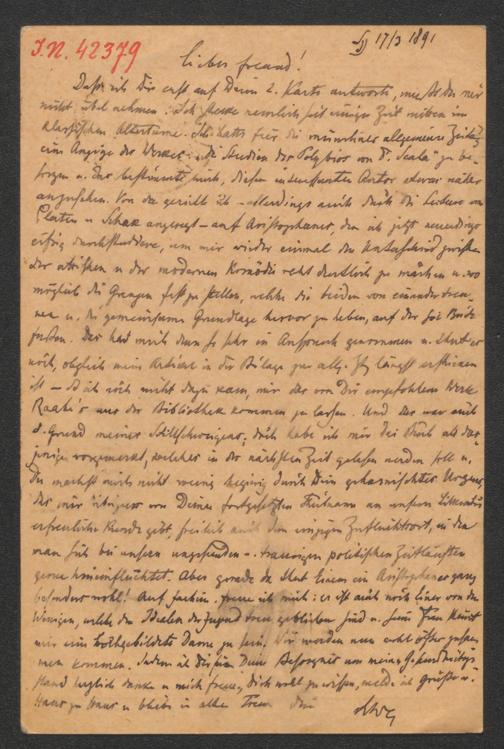 J.N. 42379
17/3 1891
Lieber Freund!
Dass ich Dir erst auf Deine 2. Karte antworte, musst Du mir
nicht übel nehmen. Ich stecke nämlich seit einiger Zeit mitten im
klassischen Altertume. Ich hatte für die Münchner allgemeine Zeitung
eine Anzeige des Werkes: "die Studien des Polybios von R. Scala" zu be-
sorgen u. das bestimmte mich, diesen interessanten Autor etwas näher
anzusehen. Von da geriet ich – allerdings auch durch die Lectüre von
Platen u. Schack angeregt – auf Aristophanes, den ich jetzt neuerdings
eifrig durchstudiere, um mir wieder einmal den Unterschied zwischen
der attischen u. der modernen Komödie recht deutlich zu machen u. wo
möglich die Grenzen fest zu stellen, welche die beiden von einander tren-
nen u. die gemeinsame Grundlage hervor zu heben, auf der sie beide
fußen. Das hat mich denn so sehr in Anspruch genommen u. thut es
noch, obgleich mein Artikel in der Beilage zur allg. Ztg längst erschienen
ist – daß ich noch nicht dazu kam, mir das von Dir empfohlene Werk
aus der Bibliothek kommen zu lassen. Und das war auch
d. Grund meines Stillschweigens; doch habe ich mir das Buch als das-
jenige vorgemerkt, welches in der nächsten Zeit gelesen werden soll u.
Du machst mich nicht wenig begierig durch Dein
das mir übrigens von Deiner fortgesetzten an unserer Litteratur
erfreuliche Kunde gibt, freilich auch den einzigen Zufluchtsort, in den
man sich bei unsern u. traurigen politischen Zeitläuften
gerne hineinflüchtet. Aber gerade da thut Einem ein Aristophanes ganz
besonders wohl! Auf freue ich mich: er ist auch noch Einer von den
Wenigen, welche den Idealen der Jugend treu geblieben sind u. seine Frau
mir eine hochgebildete Dame zu sein. Wir werden nun wohl öfter zusam-
men kommen. Indem ich Dir für Deine Besorgnis um meinen Gesundheitszu-
stand herzlich danke u. mich freue, Dich wohl zu wissen, melde ich Grüße v.
Haus zu Haus u. bleibe in alter Treue Dein